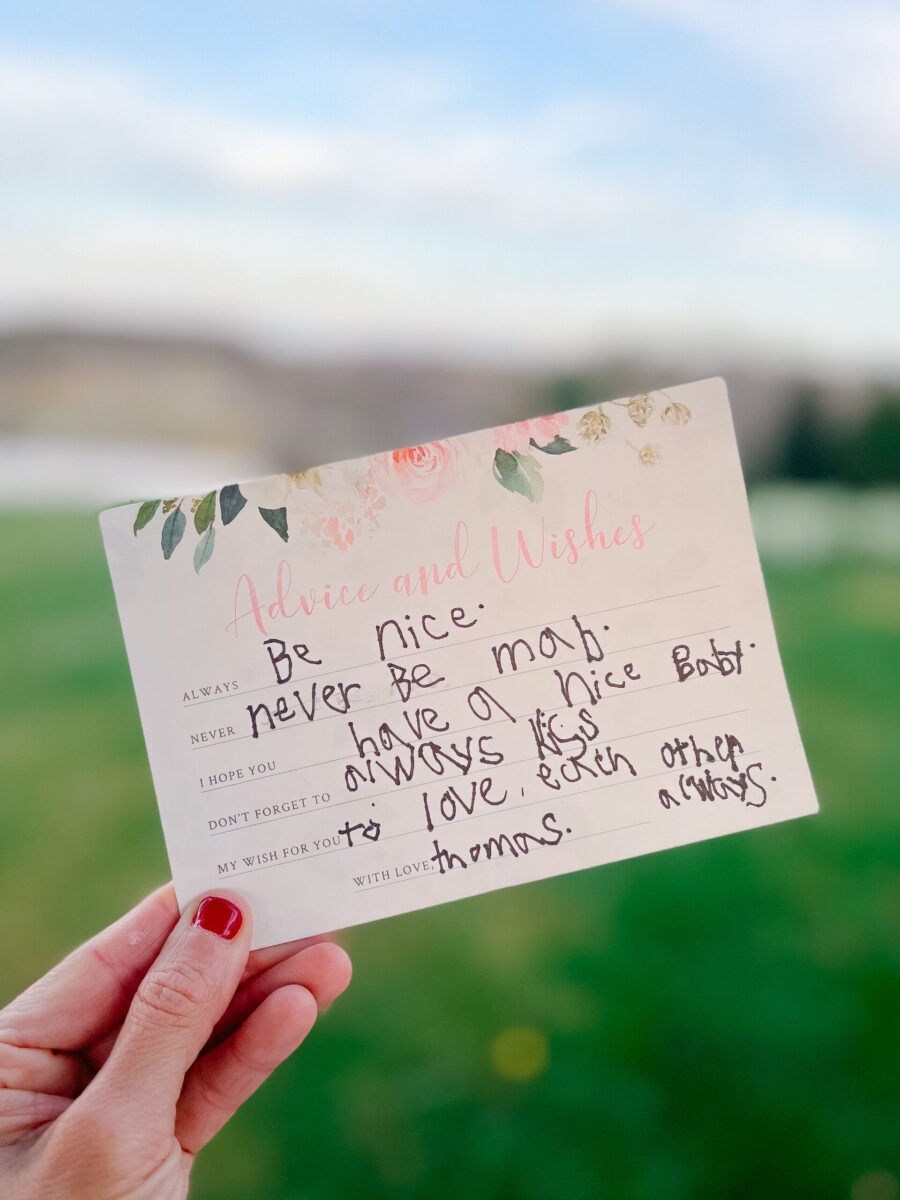 Advice and Wishes
ALWAYS Be nice.
NEVER never Be mab.
I HOPE YOU have a nice Baby.
DON'T FORGET TO always kiss
MY WISH FOR YOU to love, each other always.
WITH LOVE, thomas.